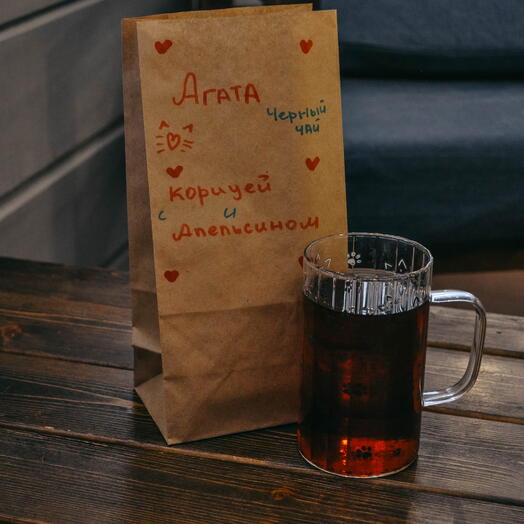 Агата
Черный
чай
с корицей
и Апельсином